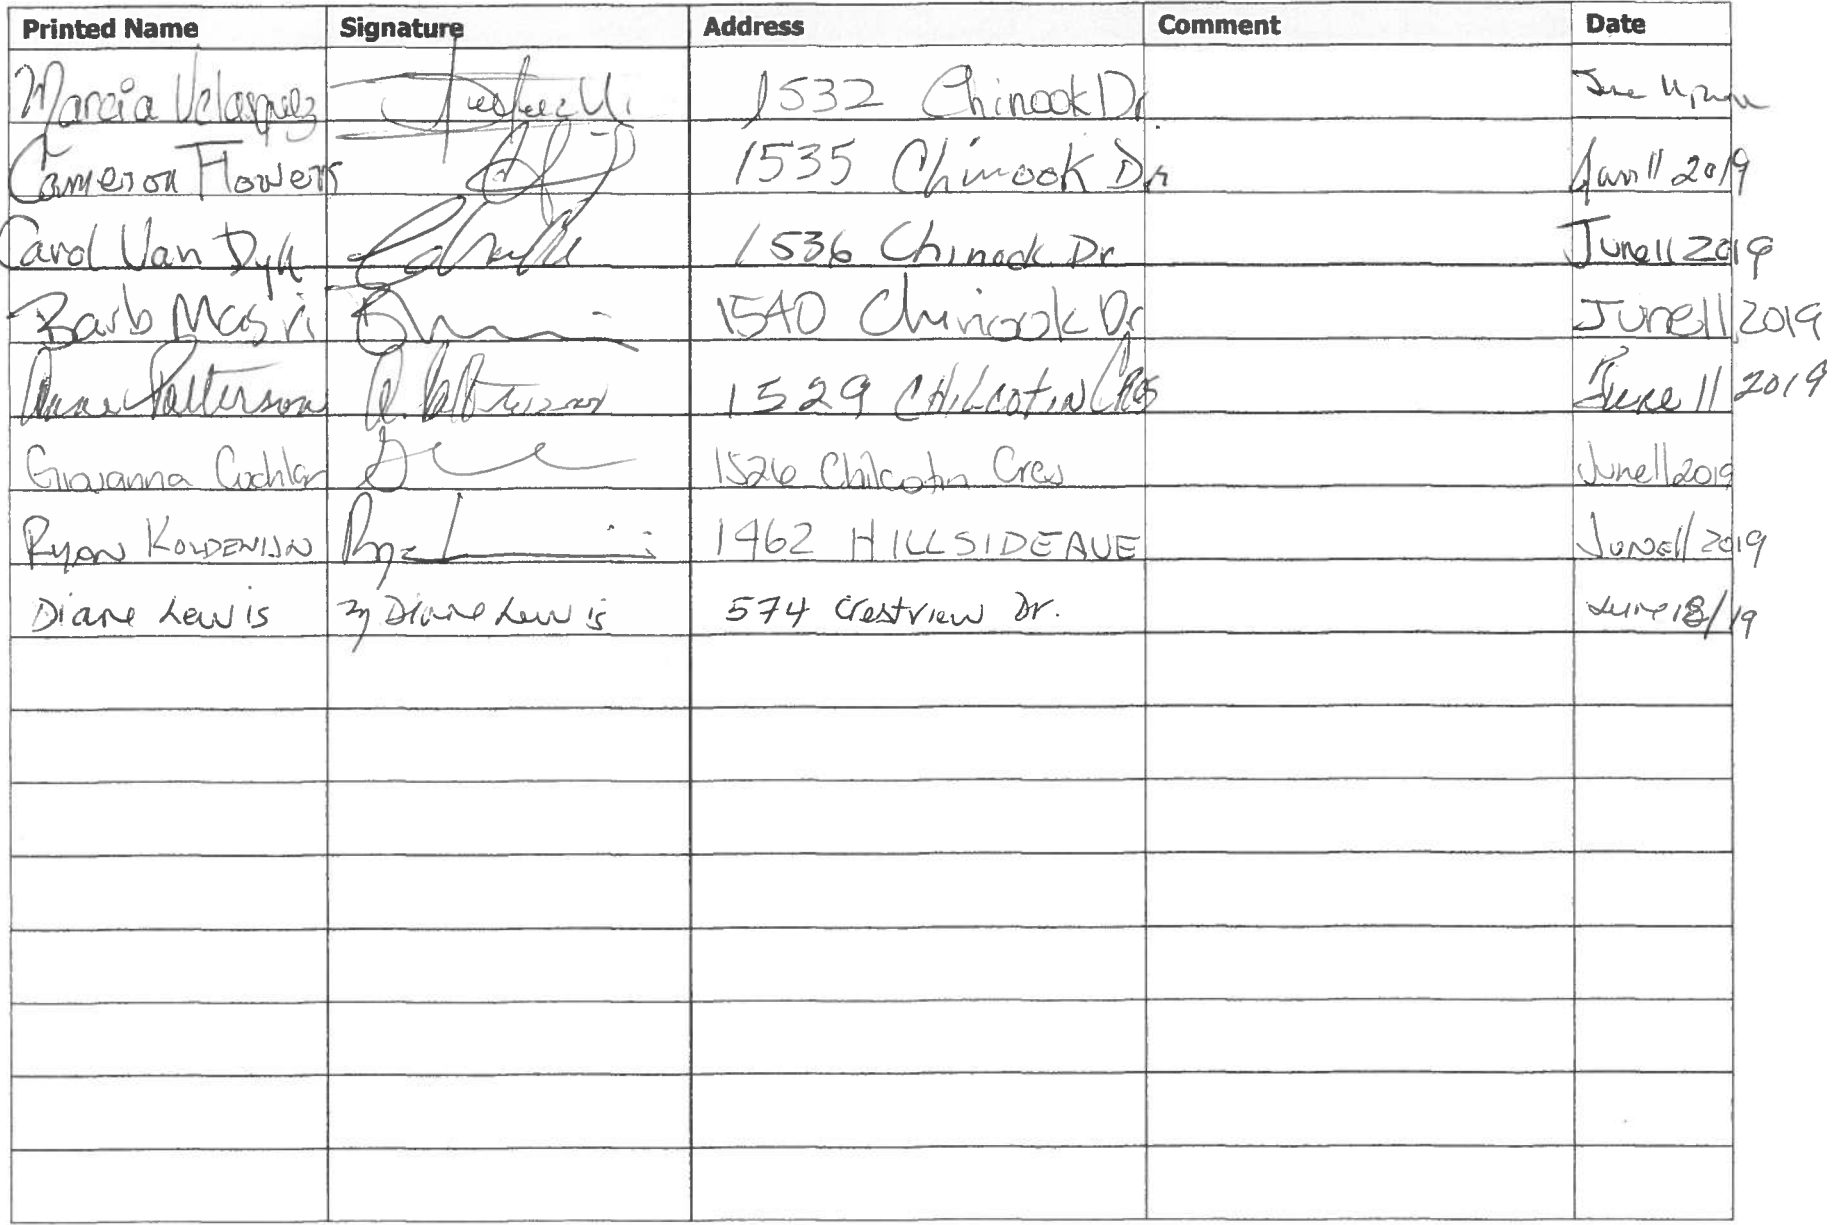 Printed Name Signature Address Comment Date
Marcia Velasquez 1532 Chinook Dr June 11,
Cameron Flowers 1535 Chinook Dr Jun 11 2019
Carol Van Dyk 1536 Chinook Dr June 11 2019
Barb Masri 1540 Chinook Dr June 11, 2019
Anne Patterson A. Patterson 1529 CHILCOTIN CRES June 11 2019
Giovanna 1526 Chilcotin Cres June 11 2019
RYAN KOLDENIJN 1462 HILLSIDE AVE JUNE 11 2019
Diane Lewis Diane Lewis 574 Crestview Dr. June 18/19